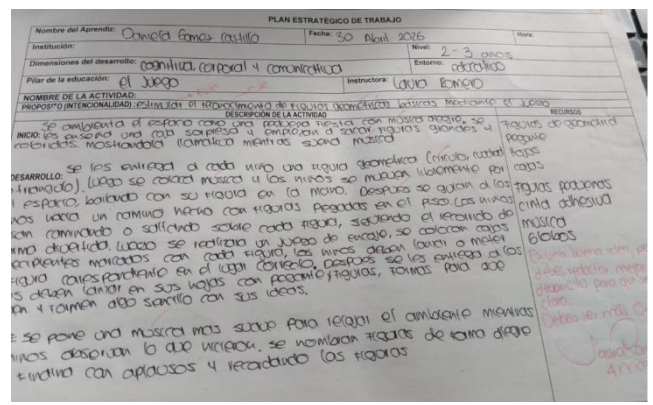 PLAN ESTRATÉGICO DE TRABAJO
Nombre del Aprendiz: Daniela Gomez Castillo Fecha: 30 Abril 2026 Hora:
Institución: Nivel: 2-3 años
Dimensiones del desarrollo: cognitiva, corporal y comunicativa Entorno: educativo
Pilar de la educación: el juego Instructora: Laura Romero
NOMBRE DE LA ACTIVIDAD:
PROPÓSITO (INTENCIONALIDAD): estimular el reconocimiento de figuras geométricas básicas mediante el juego
DESCRIPCIÓN DE LA ACTIVIDAD RECURSOS
INICIO: Se ambienta el espacio como una pequeña fiesta con música alegre, se
les enseña una caja sorpresa y empiezan a sacar figuras grandes y
coloridas, mostrandola llamativa mientras suena música
figuras de
pegante
hojas
cajas
figuras pequeñas
cinta adhesiva
música
Globos
DESARROLLO: Se les entrega a cada niño una figura geometrica (circulo,
triangulo). Luego se coloca música y los niños se mueven libremente por
el espacio, bailando con su figura en la mano. Después se guian a los
hacia un camino hecho con figuras pegadas en el piso. Los niños
caminando o saltando sobre cada figura, siguiendo el recorrido de
divertida. Luego se realizara un juego de encaje, se colocan cajas
recipientes marcados con cada figura, los niños deben lanzar o meter
figura correspondiente en el lugar correcto, Después se les entrega a los
deben en sus hojas con pegante, figuras, formas para que
y formen algo sencillo con sus ideas.
Es una buena idea,
debes
Debes ser más
se pone una música más suave para relajar el ambiente mientras
observan lo que hicieron. se nombran figuras de forma alegre
con aplausos y recordando las figuras